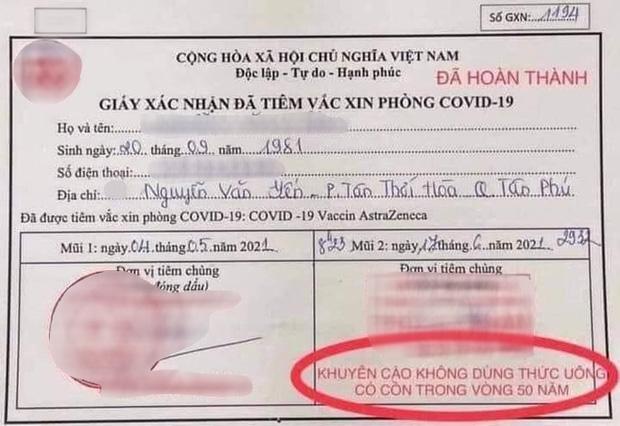 Số GXN: 1194
CỘNG HÒA XÃ HỘI CHỦ NGHĨA VIỆT NAM
Độc lập - Tự do - Hạnh phúc
ĐÃ HOÀN THÀNH
GIẤY XÁC NHẬN ĐÃ TIÊM VẮC XIN PHÒNG COVID-19
Họ và tên:
Sinh ngày: 20 tháng 09 năm 1981
Số điện thoại:
Địa chỉ: Nguyễn Văn Yến - P. Tân Thới Hòa Q Tân Phú
Đã được tiêm vắc xin phòng COVID-19: COVID -19 Vaccin AstraZeneca
Mũi 1: ngày 04 tháng 05 năm 2021
8h23 Mũi 2: ngày 17 tháng 6 năm 2021
Đơn vị tiêm chủng
đóng dấu)
Đơn vị tiêm chủng
KHUYẾN CÁO KHÔNG DÙNG THỨC UỐNG
CÓ CỒN TRONG VÒNG 50 NĂM